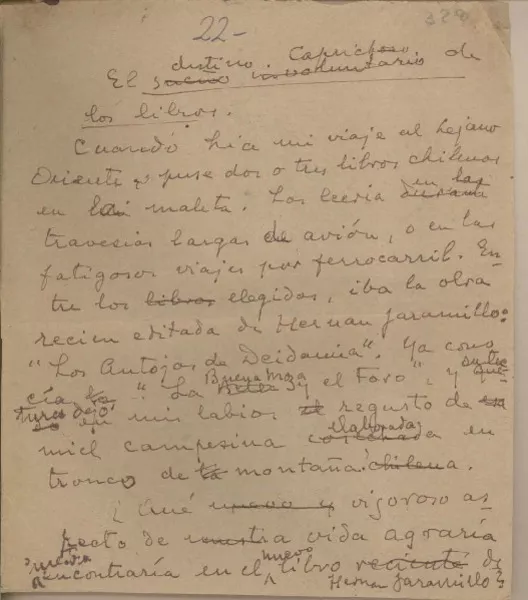 22-
320
destino caprichoso de
El sueño involuntario
los libros.
Cuando hice mi viaje al Lejano
Oriente, puse dos o tres libros chilenos
en las
en la maleta. Los leería durante
travesías largas de avión, o en las
fatigosos viajes por ferrocarril. En-
tre los libros elegidos, iba la obra
recien editada de Hernan Jaramillo:
"Los Antojos de Deidamia". Ya cono-
cía "La Buena Moza y el Toro", y
dejó en mis labios regusto de
miel campesina elaborada en
tronco de montaña chilena.
¿Qué nuevo y vigoroso as-
pecto de nuestra vida agraria
encontraría en el nuevo libro reciente de
Hernan Jaramillo?